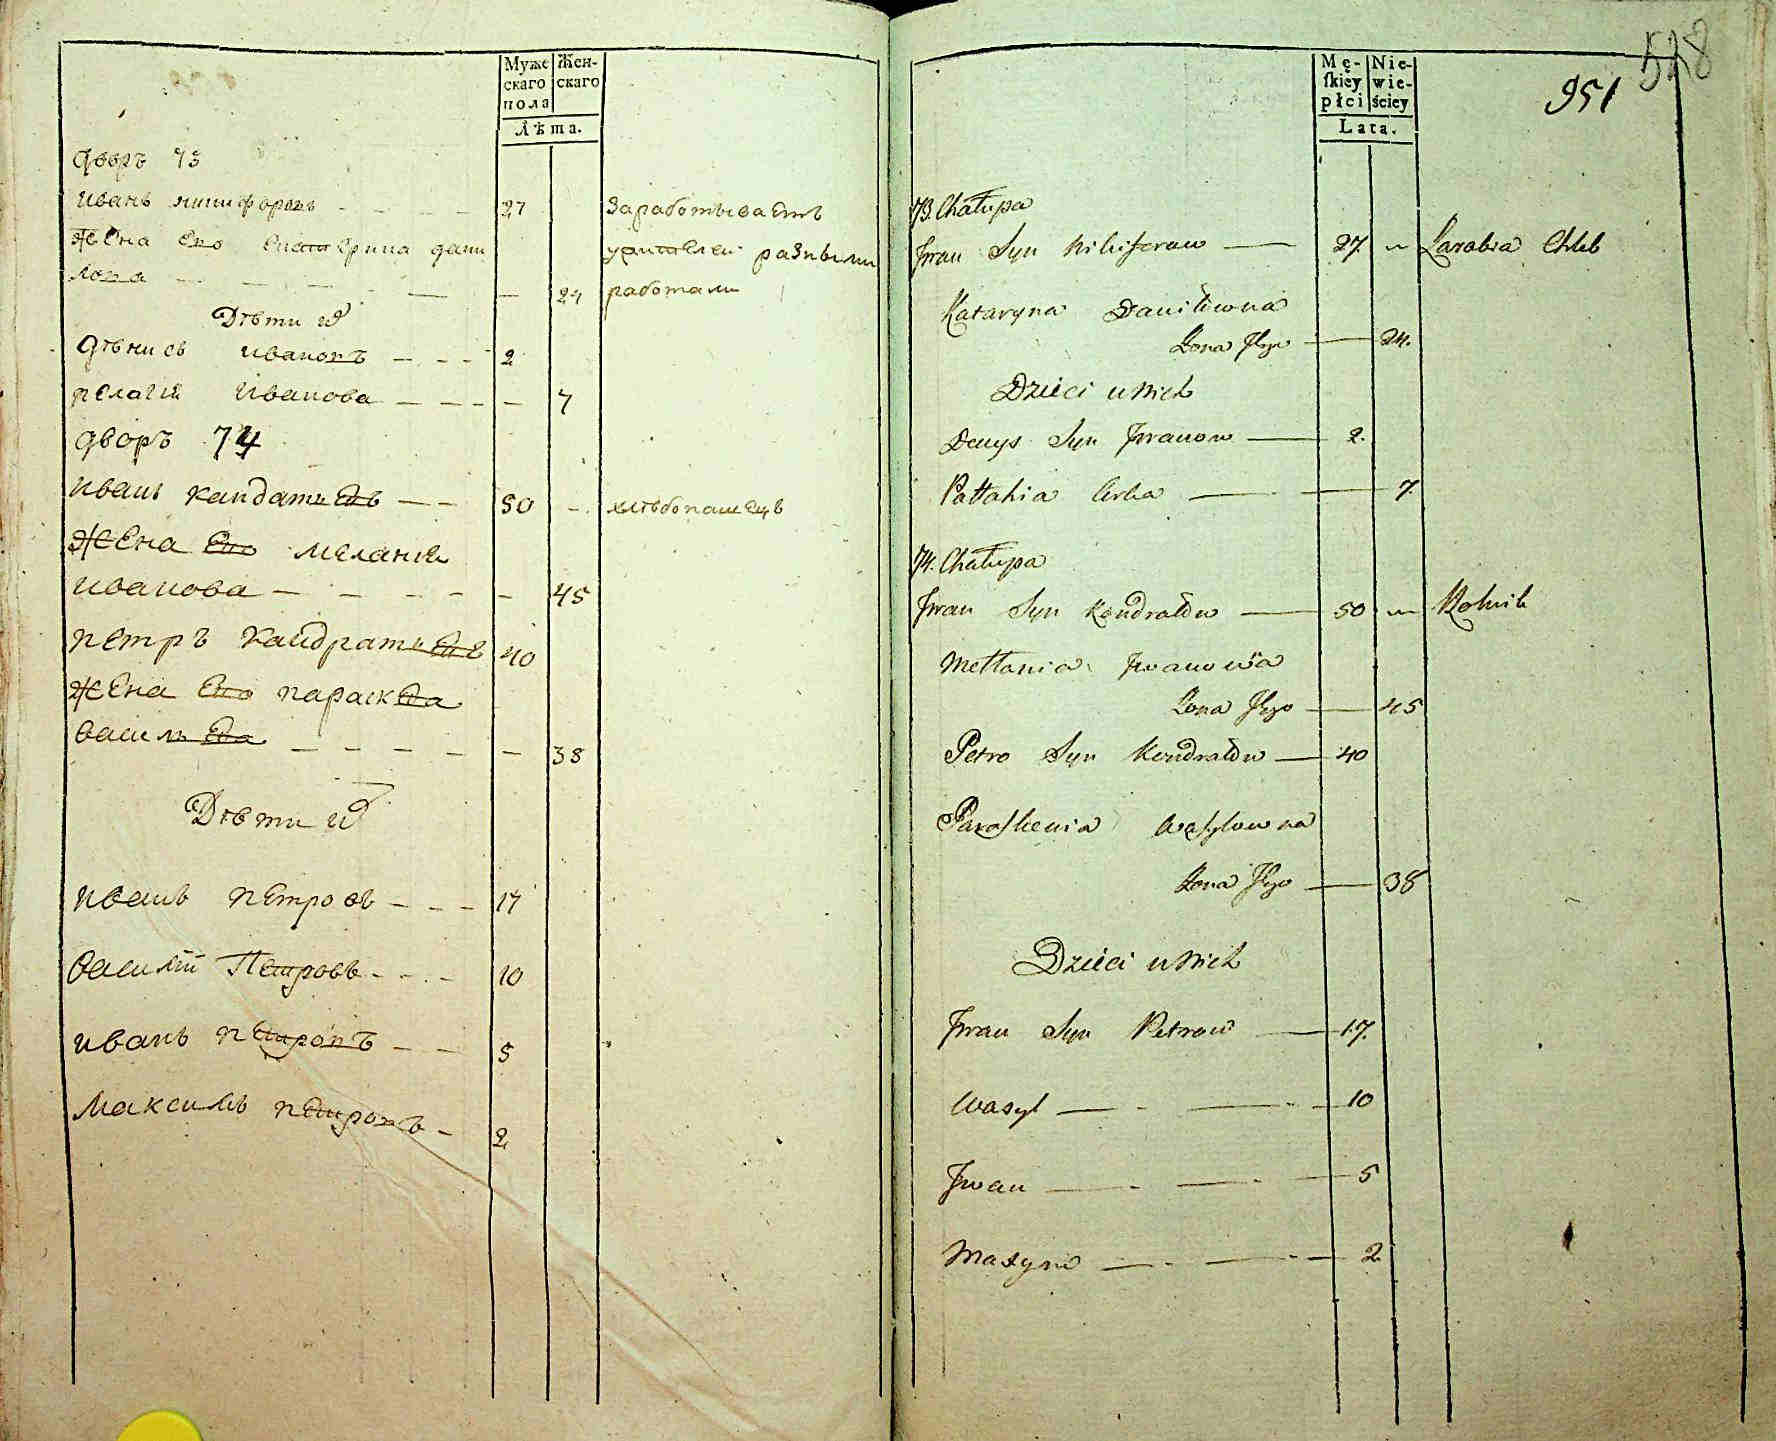 Муже
скаго
пола
Жен-
скаго
Лѣта.
дворъ 73
иванъ никифоровъ 27 Заработываетъ
жена ево екатерина дани
лова 24 разными
работами
Дѣти их
дѣнись ивановъ 2
пелагия Иванова 7
дворъ 74
иванъ кандратьевъ 50 хлѣбопашецъ
жена ево мелания
иванова 45
петръ кандратьевъ 40
жена ево параскева
васильева 38
Дѣти их
иванъ петровъ 17
василий Петровъ 10
иванъ петровъ 5
максимъ петровъ 2
528
951
Mę-
ſkiey
płci
Nie-
wie-
ściey
Lata.
73. Chałupa
Jwan Syn Nikiforow 27 Zarabia Chleb
Kataryna Daniłowna
Zona Jego 24.
Dzieci u Nich
Denys Syn Jwanow 2.
Pałłahia Corka 7.
74. Chałupa
Jwan Syn Kondratow 50 Rolnik
Mełłania Jwanowa
Zona Jego 45
Petro Syn Kondratow 40
Paraſkewia Waſylowna
Zona Jego 38
Dzieci u Nich
Jwan Syn Petrow 17.
Wasyl 10
Jwan 5
Maxym 2